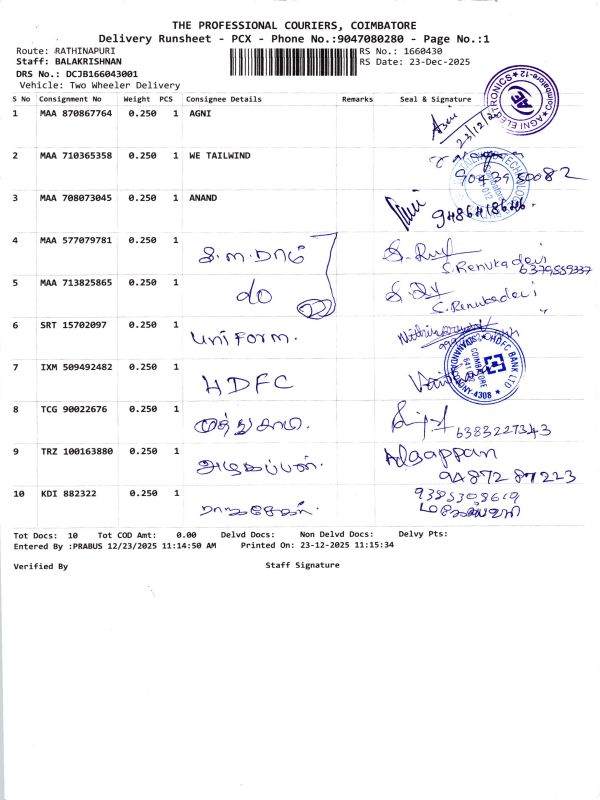 THE PROFESSIONAL COURIERS, COIMBATORE
Delivery Runsheet - PCX - Phone No.:9047080280 - Page No.:1
Route: RATHINAPURI RS No.: 1660430
Staff: BALAKRISHNAN RS Date: 23-Dec-2025
DRS No.: DCJB166043001
Vehicle: Two Wheeler Delivery
S No Consignment No Weight PCS Consignee Details Remarks Seal & Signature
1 MAA 870867764 0.250 1 AGNI
AGNI ELECTRONICS Coimbatore-12
AE
23/12/25
2 MAA 710365358 0.250 1 WE TAILWIND
90439 50082
3 MAA 708073045 0.250 1 ANAND
9486418646
4 MAA 577079781 0.250 1 S. Renuka devi
6379559337
5 MAA 713825865 0.250 1 do S. Renukadevi
22
6 SRT 15702097 0.250 1 uniform.
7 IXM 509492482 0.250 1 HDFC
HDFC BANK LTD
COIMBATORE
4308
8 TCG 90022676 0.250 1 முத்துசாமி. 6383227343
9 TRZ 100163880 0.250 1 அழகப்பன். Alagappan
94872 87223
10 KDI 882322 0.250 1 ராஜசேகர். 9385308619
Tot Docs: 10 Tot COD Amt: 0.00 Delvd Docs: Non Delvd Docs: Delvy Pts:
Entered By :PRABUS 12/23/2025 11:14:50 AM Printed On: 23-12-2025 11:15:34
Verified By Staff Signature